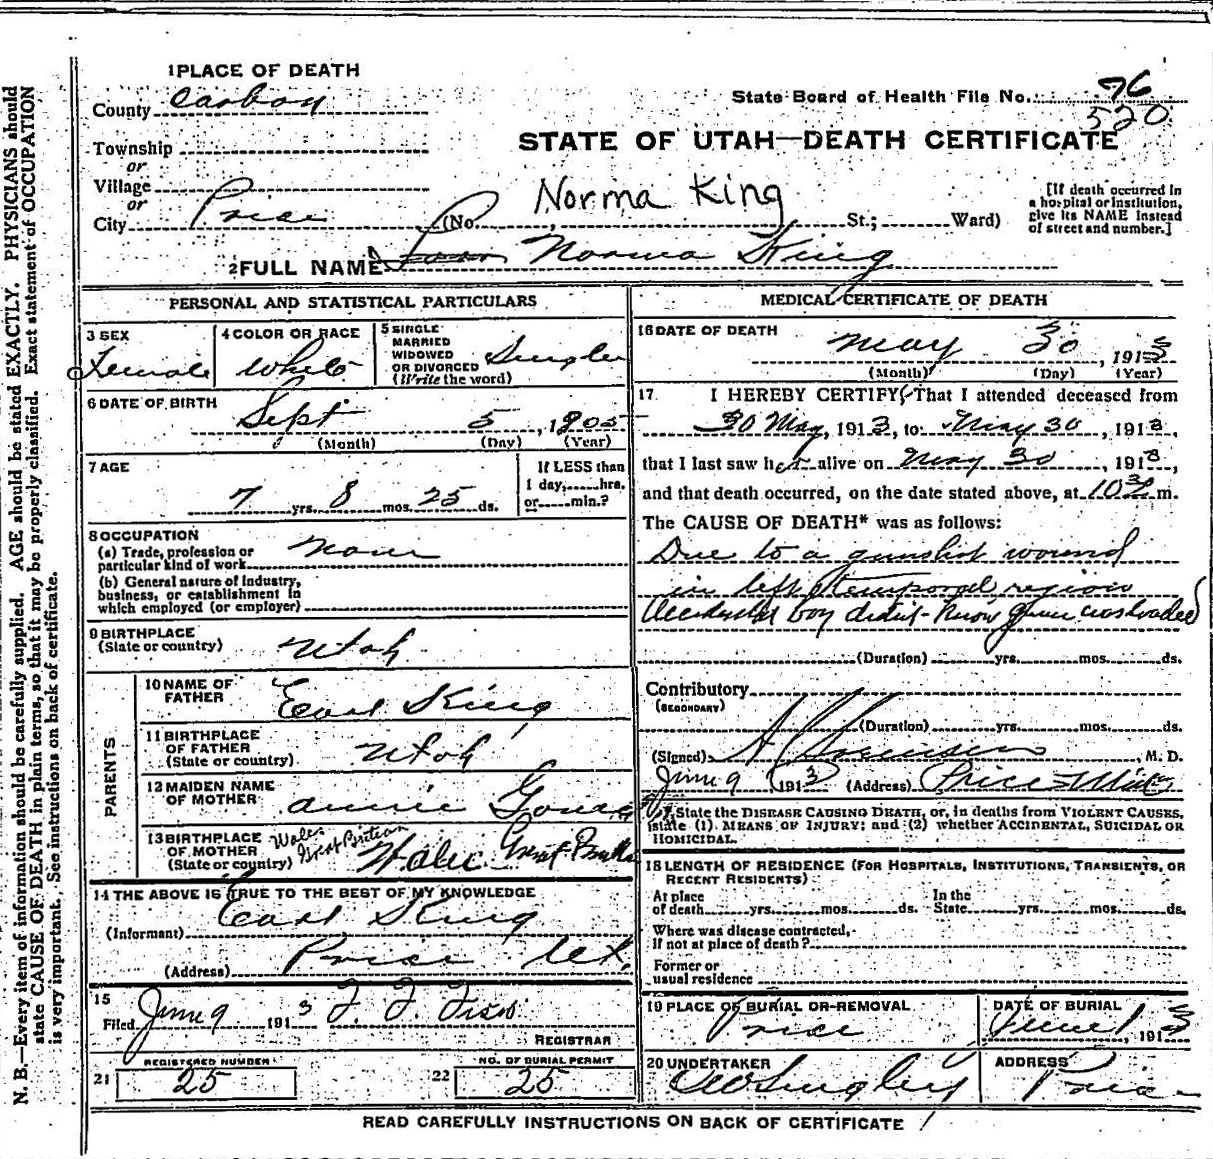 1 PLACE OF DEATH
County Carbon
State Board of Health File No. 76
520
Township
or
Village
or
City Price
STATE OF UTAH—DEATH CERTIFICATE
Norma King
(No. St.; Ward)
[If death occurred in a hospital or institution, give its NAME instead of street and number.]
2 FULL NAME Norma King
PERSONAL AND STATISTICAL PARTICULARS
3 SEX
Female
4 COLOR OR RACE
White
5 SINGLE MARRIED WIDOWED OR DIVORCED (Write the word)
Single
6 DATE OF BIRTH
Sept 5, 1905
(Month) (Day) (Year)
7 AGE
7 yrs. 8 mos. 25 ds.
If LESS than 1 day, hrs. or min.?
8 OCCUPATION
(a) Trade, profession or particular kind of work None
(b) General nature of industry, business, or establishment in which employed (or employer)
9 BIRTHPLACE
(State or country) Utah
PARENTS
10 NAME OF FATHER Earl King
11 BIRTHPLACE OF FATHER (State or country) Utah
12 MAIDEN NAME OF MOTHER Annie
13 BIRTHPLACE OF MOTHER (State or country) Wales Great Britian Wales Great
14 THE ABOVE IS TRUE TO THE BEST OF MY KNOWLEDGE
(Informant) Earl King
(Address) Price Ut.
15
Filed June 9 1913
REGISTRAR
REGISTERED NUMBER
21 25
NO. OF BURIAL PERMIT
22 25
MEDICAL CERTIFICATE OF DEATH
16 DATE OF DEATH
May 30, 1913
(Month) (Day) (Year)
17 I HEREBY CERTIFY, That I attended deceased from
30 May, 1913, to May 30, 1913,
that I last saw her alive on May 30, 1913,
and that death occurred, on the date stated above, at m.
The CAUSE OF DEATH* was as follows:
Due to a gunshot wound
in left temporal region
Accidental boy didn't know gun was loaded
(Duration) yrs. mos. ds.
Contributory
(SECONDARY)
(Duration) yrs. mos. ds.
(Signed) Sorensen, M. D.
June 9 1913 (Address) Price Utah
State the DISEASE CAUSING DEATH, or, in deaths from VIOLENT CAUSES, state (1) MEANS OF INJURY; and (2) whether ACCIDENTAL, SUICIDAL OR HOMICIDAL.
18 LENGTH OF RESIDENCE (FOR HOSPITALS, INSTITUTIONS, TRANSIENTS, OR RECENT RESIDENTS)
At place of death yrs. mos. ds. In the State yrs. mos. ds.
Where was disease contracted, if not at place of death?
Former or usual residence
19 PLACE OF BURIAL OR REMOVAL
Price
DATE OF BURIAL
June 1 1913
20 UNDERTAKER
ADDRESS
Price
READ CAREFULLY INSTRUCTIONS ON BACK OF CERTIFICATE
N. B.—Every item of information should be carefully supplied. AGE should be stated EXACTLY. PHYSICIANS should
state CAUSE OF DEATH in plain terms, so that it may be properly classified. Exact statement of OCCUPATION
is very important. See instructions on back of certificate.